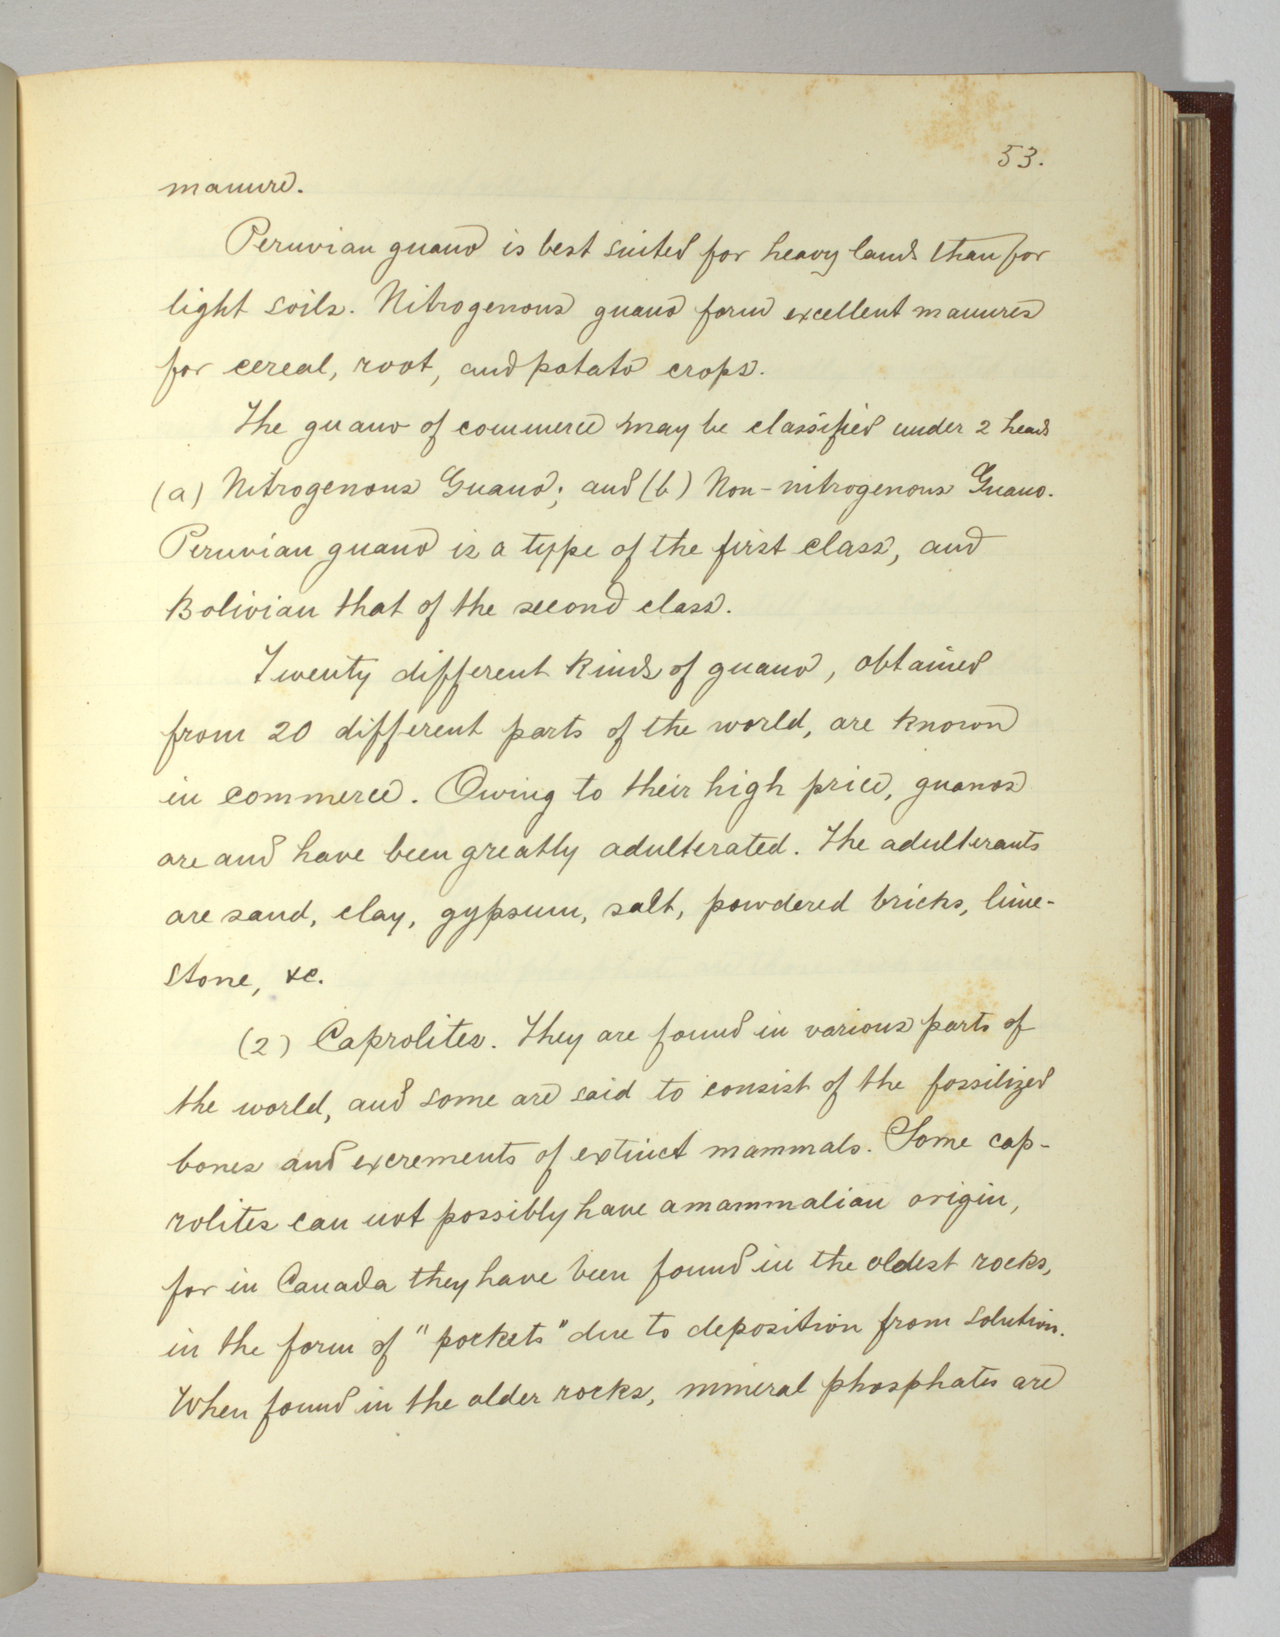 53.
manure.
Peruvian guano is best suited for heavy lands than for
light soils. Nitrogenous guano form excellent manures
for cereal, root, and potato crops.
The guano of commerce may be classified under 2 heads
(a) Nitrogenous Guano; and (b) Non-nitrogenous Guano.
Peruvian guano is a type of the first class, and
Bolivian that of the second class.
Twenty different kinds of guano, obtained
from 20 different parts of the world, are known
in commerce. Owing to their high price, guanos
are and have been greatly adulterated. The adulterants
are sand, clay, gypsum, salt, powdered bricks, lime-
stone, &c.
(2) Caprolites. They are found in various parts of
the world, and some are said to consist of the fossilized
bones and excrements of extinct mammals. Some cap-
rolites can not possibly have a mammalian origin,
for in Canada they have been found in the oldest rocks,
in the form of "pockets" due to deposition from solution.
When found in the older rocks, mineral phosphates are